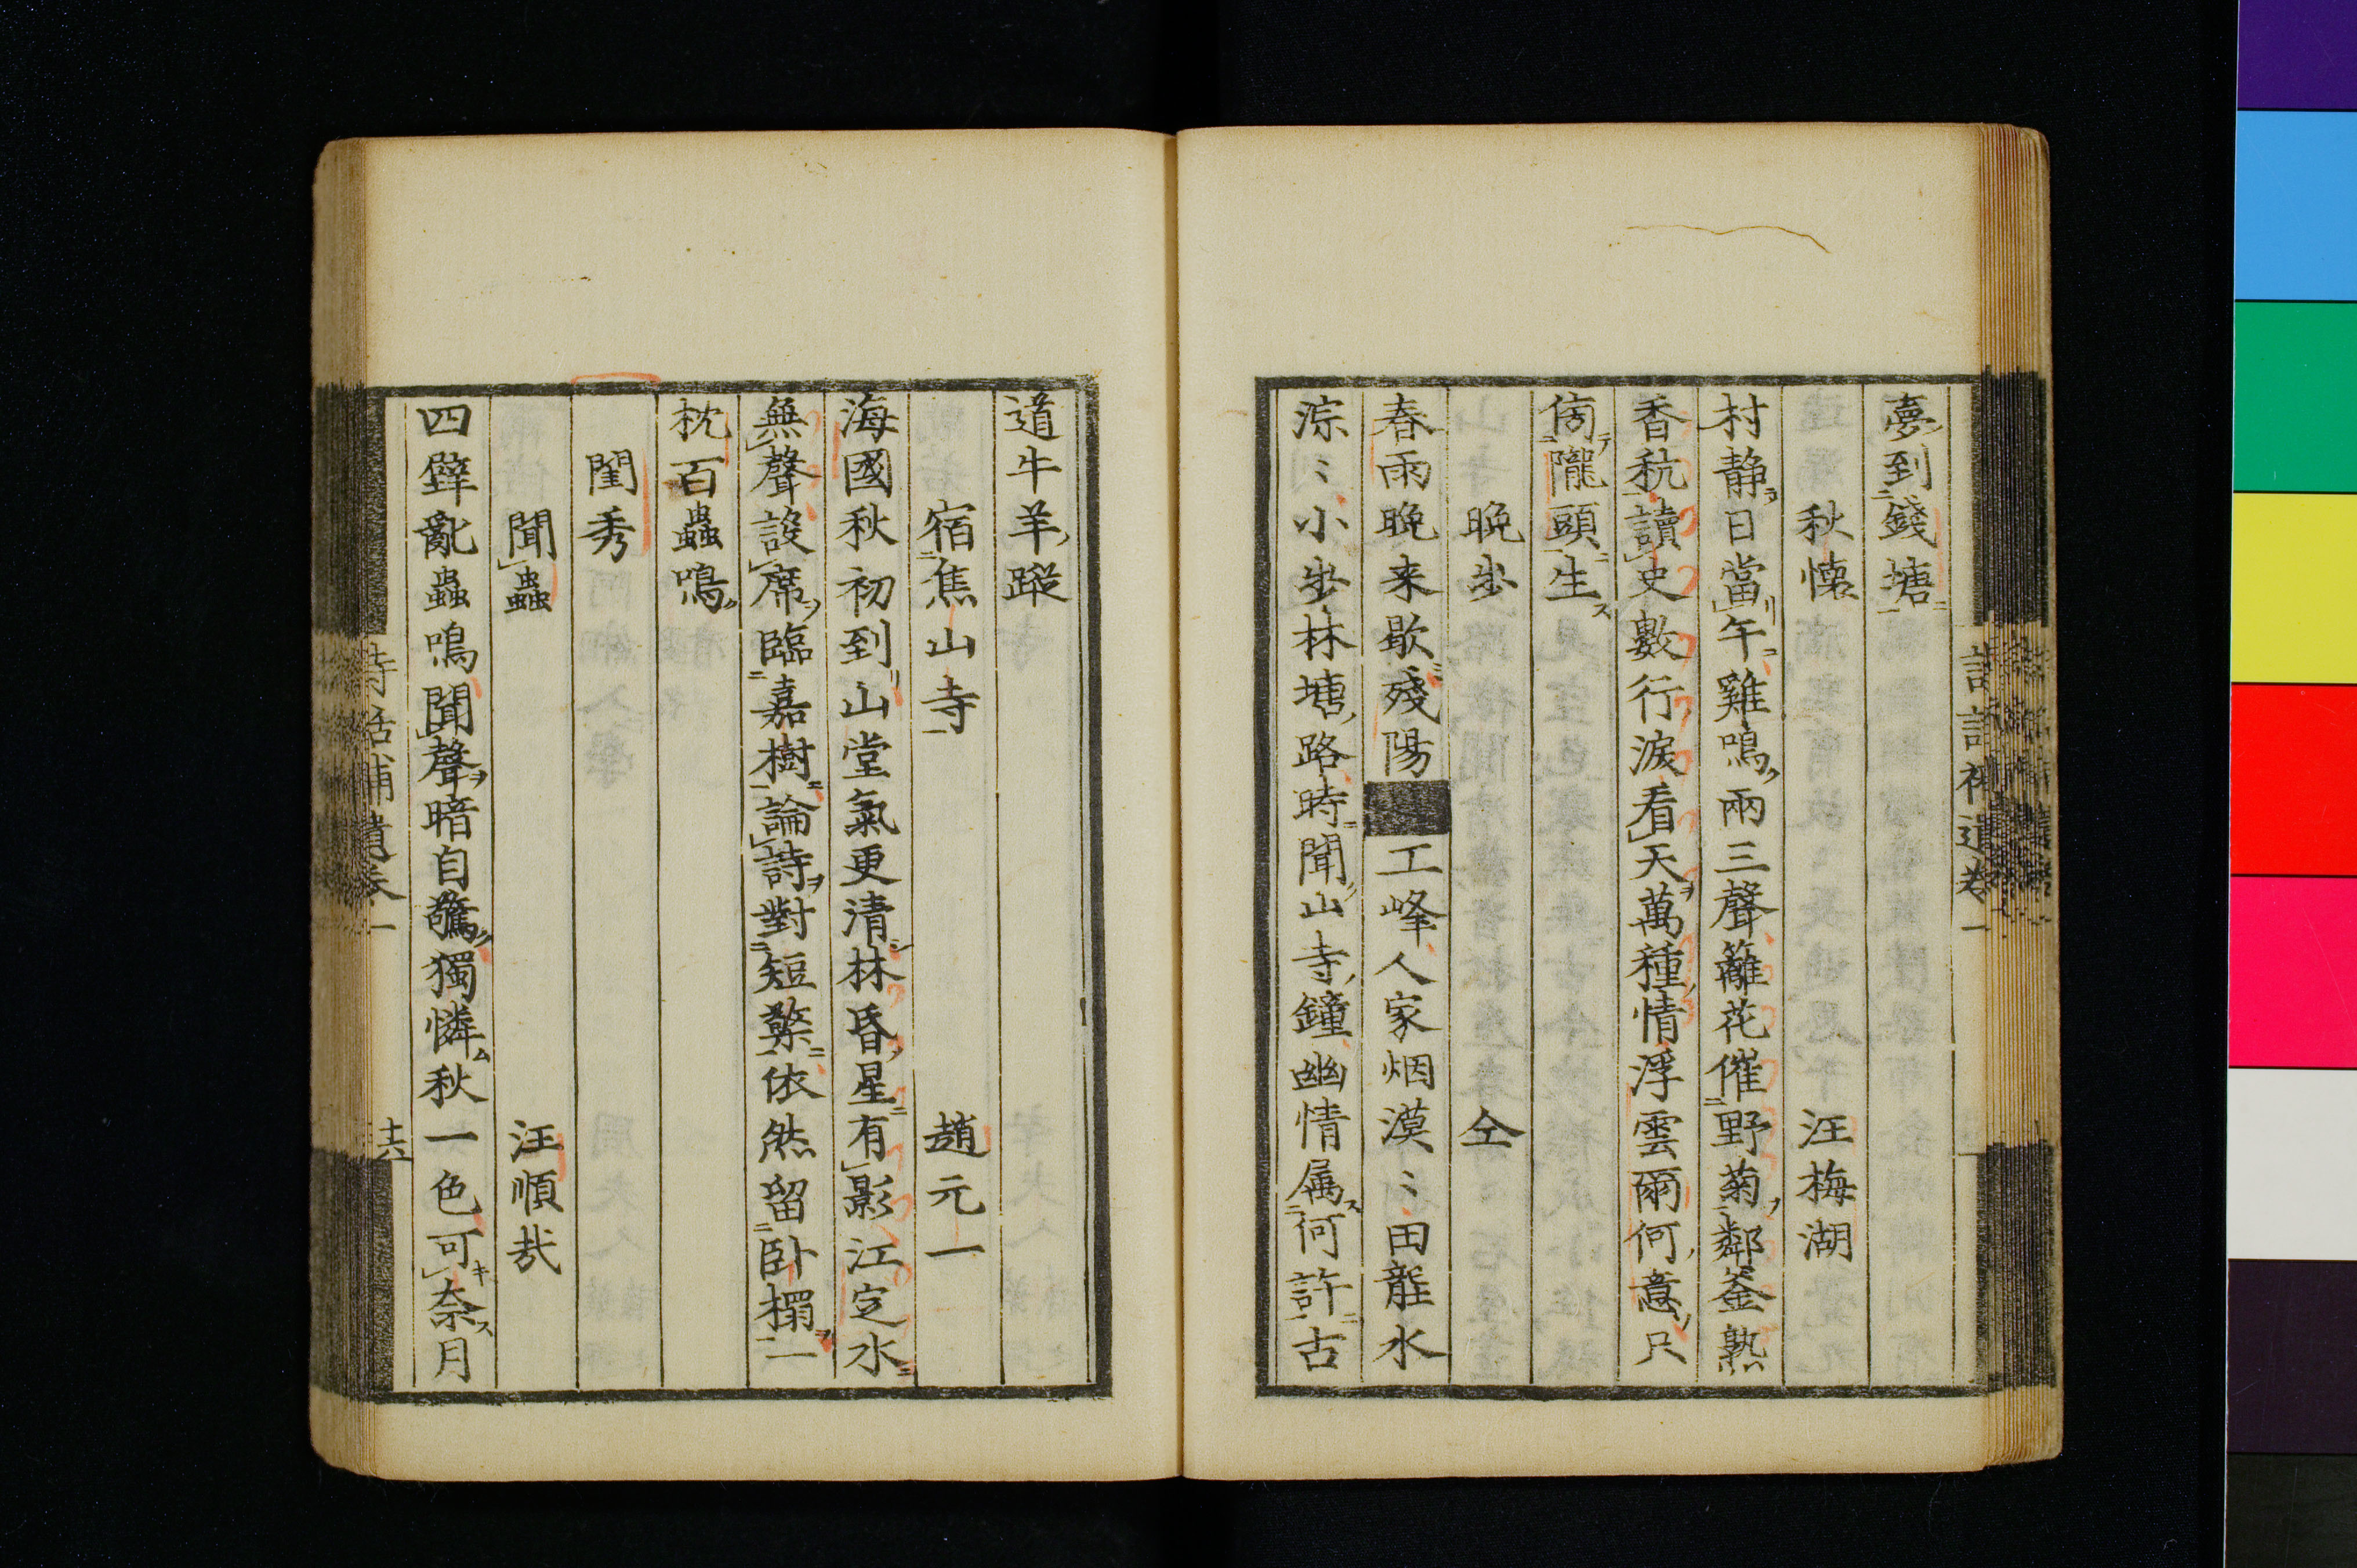 夢到錢塘
秋懐 汪梅湖
村静日當午雞鳴兩三聲籬花催野菊鄰釜熟
香秔讀史數行淚看天萬種情浮雲爾何意只
傍隴頭生
晩歩 仝
春雨晩来歇殘陽■工峰人家烟漠〻田龍水
淙〻小歩林塘路時聞山寺鐘幽情属何許古
道牛羊蹤
宿焦山寺 趙元一
海國秋初到山堂氣更清林昏星有影江定水
無聲設席臨嘉樹論詩對短檠依然留卧榻一
枕百蟲鳴
閨秀
聞蟲 汪順哉
四壁亂蟲鳴聞聲暗自驚獨憐秋一色可奈月
詩話補遺卷一
十六